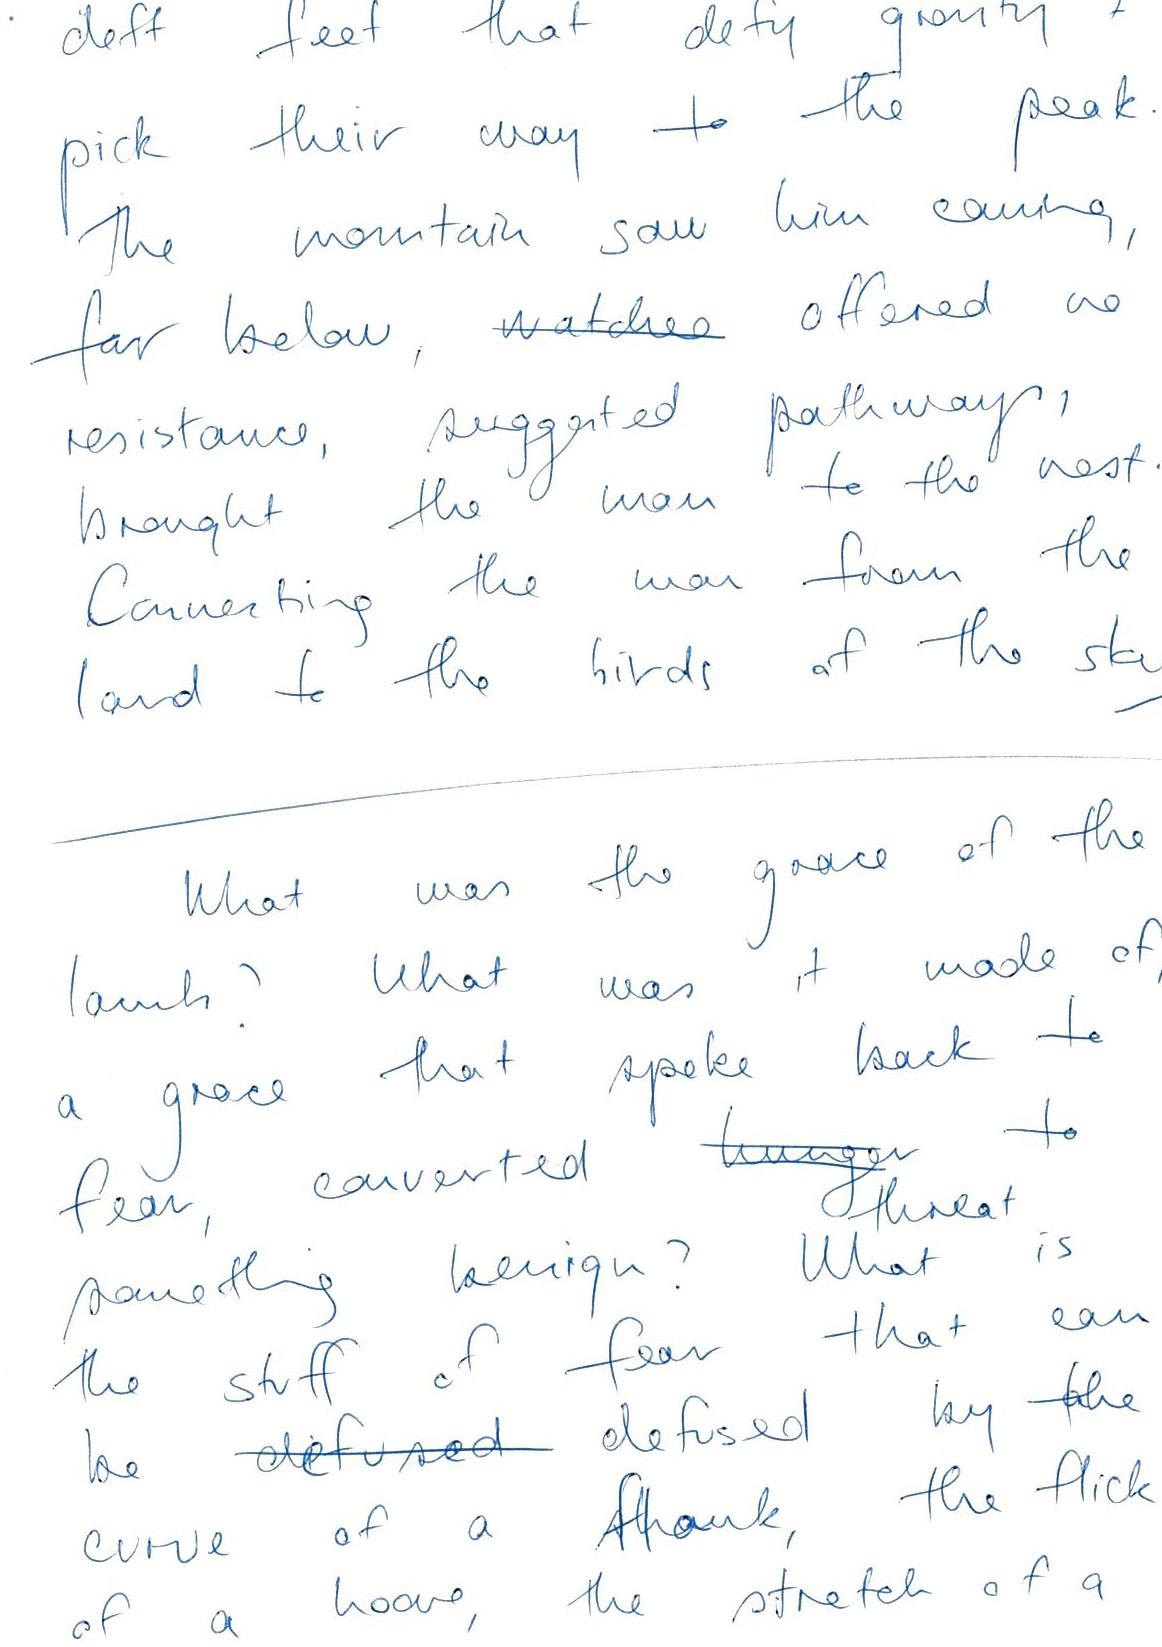 deft feet that defy gravity +
pick their way to the peak.
The mountain saw him coming,
far below, ~~watches~~ offered no
resistance, suggested pathways,
brought the man to the nest.
Connecting the man from the
land to the birds of the sky
What was the grace of the
lamb? What was it made of,
a grace that spoke back to
fear, converted ~~hunger~~ to
threat
something benign? What is
the stuff of fear that can
be ~~defused~~ defused by the
curve of a flank, the flick
of a hoove, the stretch of a